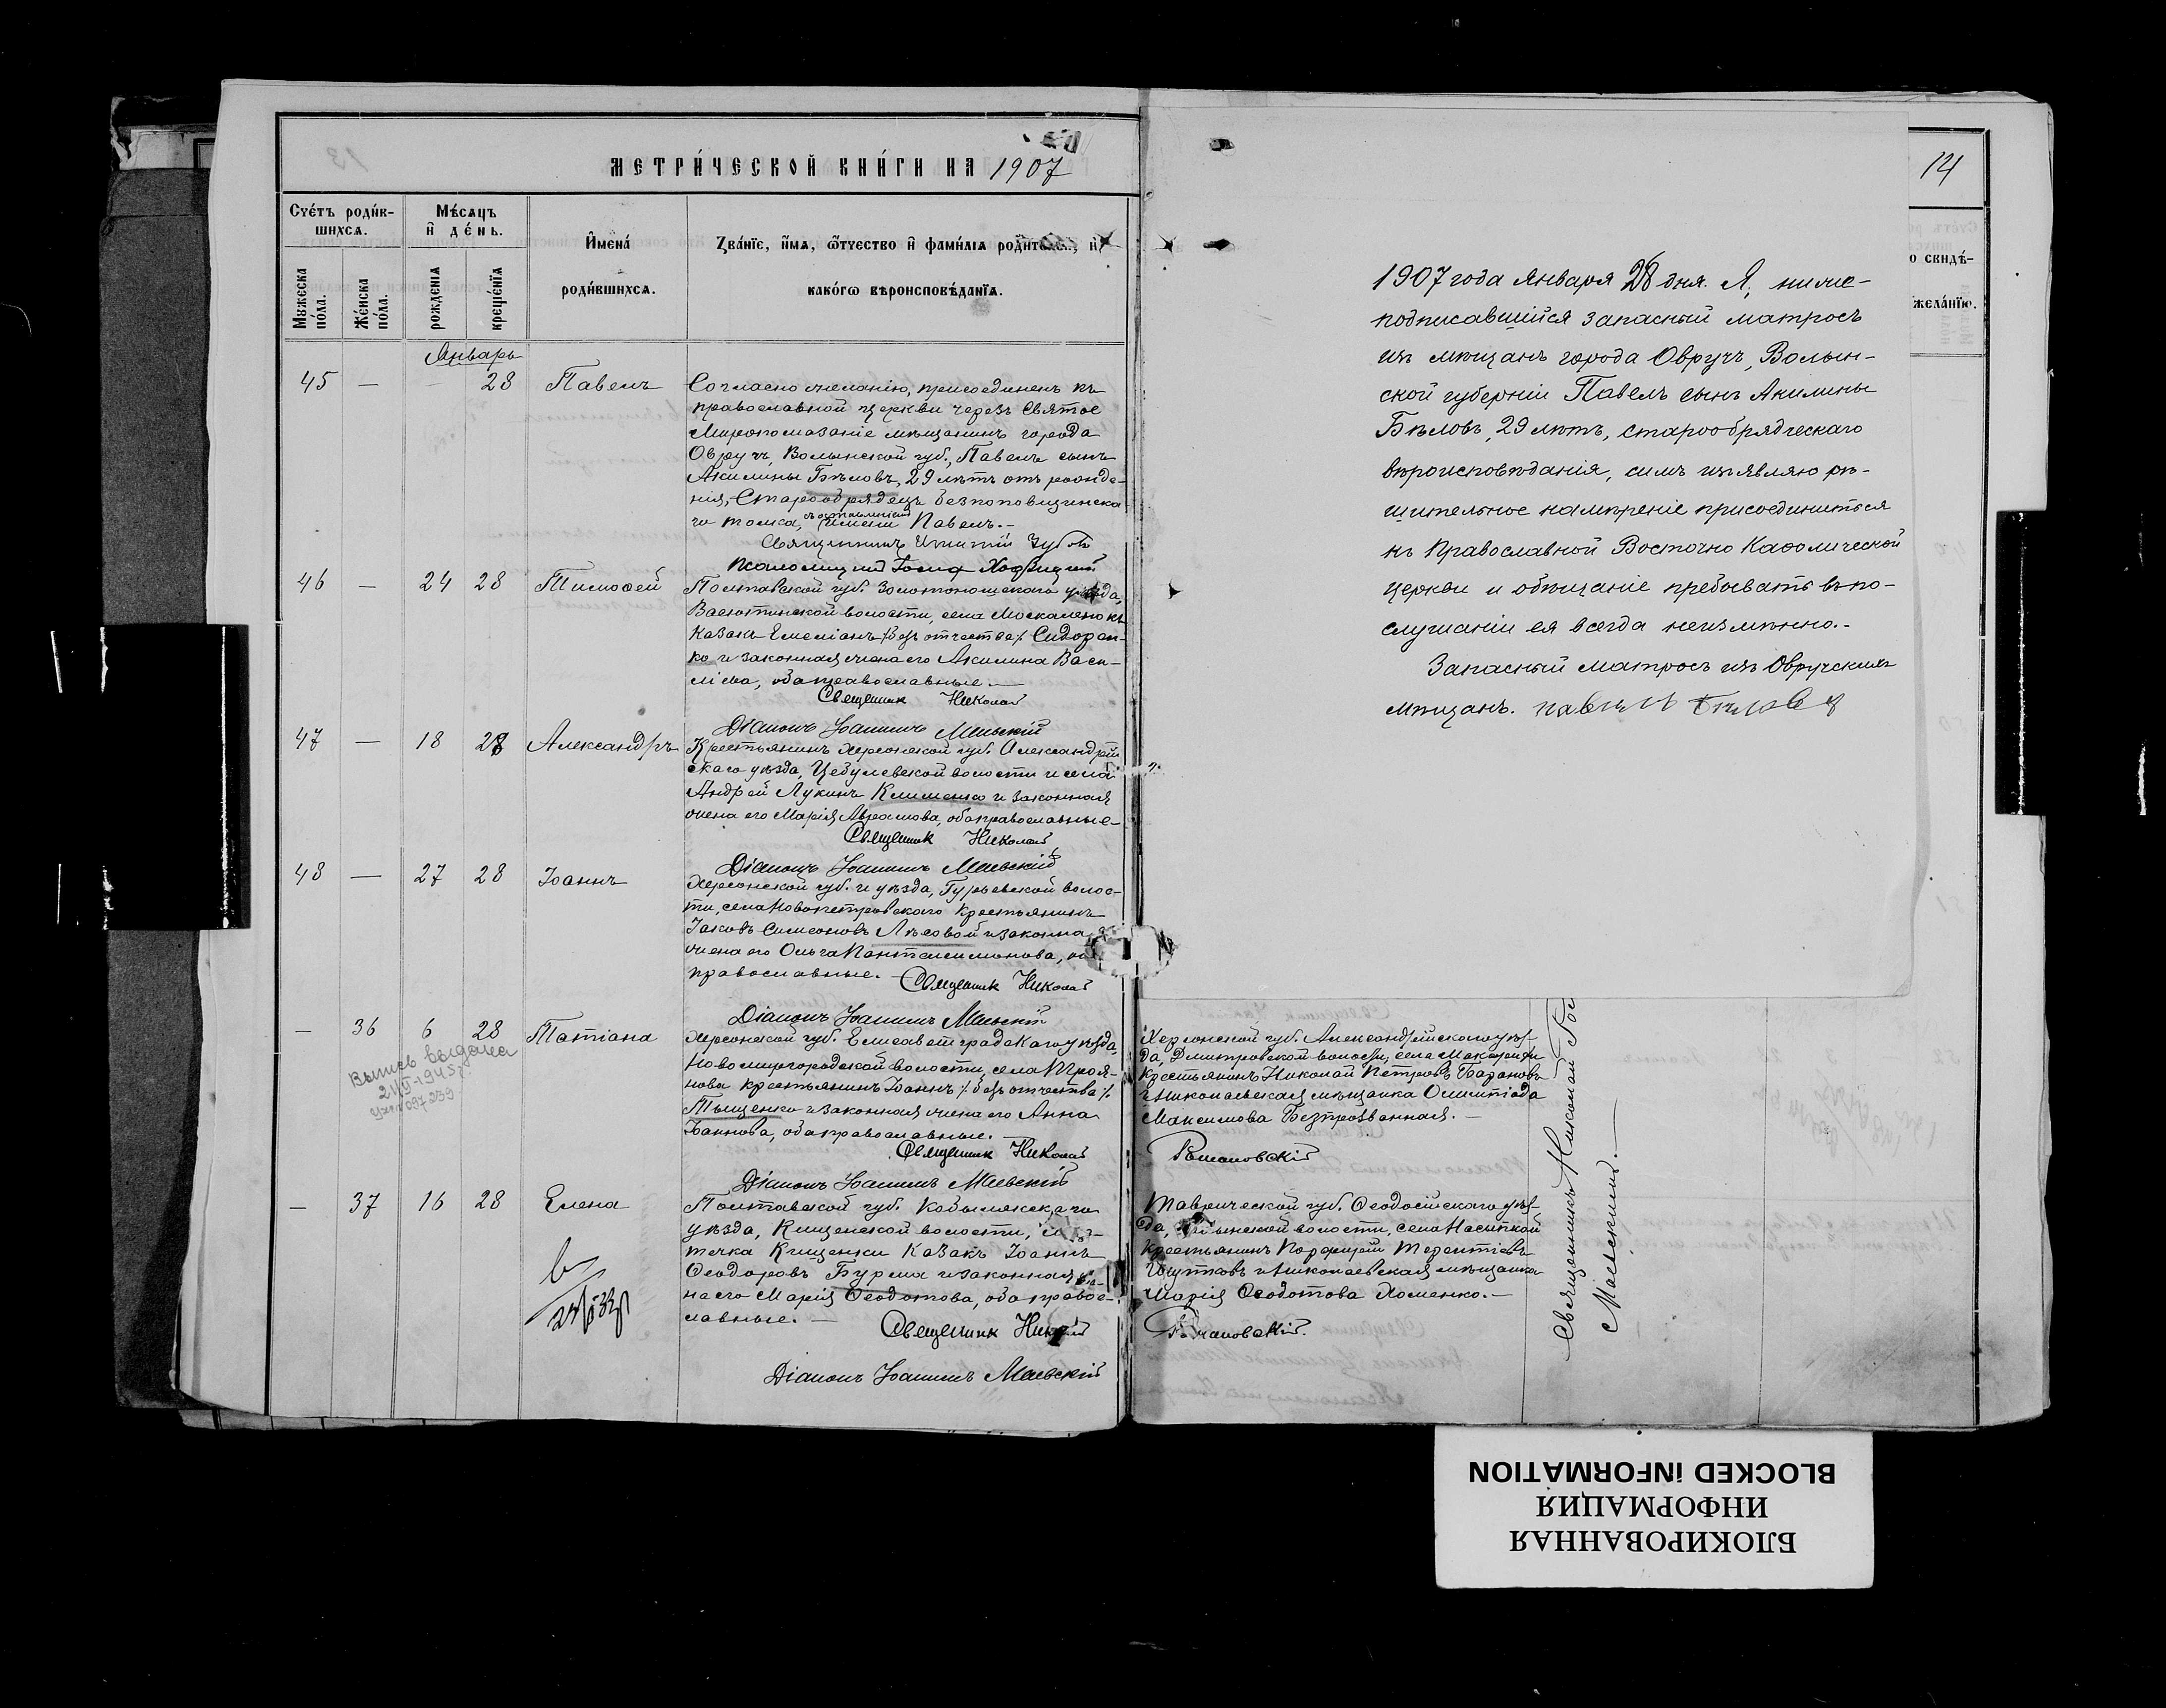 МЕТРИ́ЧЕСКОЙ КНИ́ГИ НА 1907
Сче́тъ роди́вшихсѧ.
Мꙋ́жеска по́ла.
Же́нска по́ла.
Мѣ́сѧцъ и҆ де́нь.
рожде́нїѧ
креще́нїѧ
И҆мена̀ роди́вшихсѧ.
Зва́нїе, и҆́мѧ, ѻ҆́тчество и҆ фами́лїѧ роди́телей, и҆
како́гѡ вѣроисповѣ́данїѧ.
Январь
45 — — 28 Павелъ
Согласно желанію, присоединенъ къ
православной церкви черезъ Святое
Миропомазаніе мѣщанинъ города
Овручъ, Волынской губ., Павелъ сынъ
Акилины Бѣловъ, 29 лѣтъ отъ рожде-
нія, Старообрядецъ безпоповщинска-
го толка, съ оставленіемъ имени Павелъ.-
Священникъ Зубовъ
Псаломщикъ Іосиф
46 — 24 28 Тимоѳей
Полтавской губ. Золотоношскаго уѣзда,
волости, села Москаленокъ
Казакъ Емеліанъ /безъ отчества/ Сидорен-
ко и законная жена его Акилина Васи-
ліева, оба православные.—
Священник Николай
Діаконъ Іоаннъ Маевскій
47 — 18 28 Александръ
Крестьянинъ Херсонской губ. Александрій-
скаго уѣзда, Цебулевской волости и села
Андрей Лукинъ Клименко и законная
жена его Марія Аврамова, оба православные—
Священник Николай
Діаконъ Іоаннъ Маевскій
48 — 27 28 Іоаннъ
Херсонской губ. и уѣзда, Гурьевской волос-
ти, села Новопетровскаго Крестьянинъ
Іаковъ Симеоновъ Лѣсовой и законна
жена его Ольга Пантелеимонова, оба
православные. — Священник Николай
Діаконъ Іоаннъ Маевскій
— 36 6 28 Татіана
Выпись выдана
Херсонской губ. Елисаветградскаго уѣзда,
Новомиргородской волости, села Троя-
нова крестьянинъ Іоаннъ /безъ отчества/
Тищенко и законная жена его Анна
Іоаннова, оба православные. —
Священник Николай
Діаконъ Іоаннъ Маевскій
— 37 16 28 Елена
Полтавской губ. Кобелякскаго
уѣзда, Кищенской волости, мѣс-
течка Кищенки Казакъ Іоаннъ
Ѳеодоровъ Бурма и законная же-
на его Марія Ѳеодотова, оба правос-
лавные. —
Священник Николай
Діаконъ Іоаннъ Маевскій
14
о свидѣ-
жела́нїю.
1907 года Января 28 дня. Я, ниже-
подписавшійся запасный матросъ
изъ мѣщанъ города Овручъ, Волын-
ской губерніи Павелъ сынъ Акилины
Бѣловъ, 29 лѣтъ, старообрядческаго
вѣроисповѣданія, симъ изъявляю рѣ-
шительное намѣреніе присоединиться
къ Православной Восточно Каѳолической
церкви и обѣщаніе пребывать въ по-
слушаніи ея всегда неизмѣнно.-
Запасный матросъ изъ Овручскихъ
мѣщанъ. Павелъ Бѣловъ
Херсонской губ. Александрійскаго уѣз-
да, Дмитровской волости, села Макарихи
крестьянинъ Николай Петровъ Барановъ
и николаевская мѣщанка Олимпіада
Максимова Безпрозванная. —
Романовскій
Таврической губ. Ѳеодосійскаго уѣз-
да, волости, села Насыпкой
крестьянинъ Порфирій Терентіевъ
и николаевская мѣщанка
Марія Ѳеодотова Хоменко.—
Романовскій.
Священникъ Николай
Маевскій. —
БЛОКИРОВАННАЯ
ИНФОРМАЦИЯ
BLOCKED INFORMATION